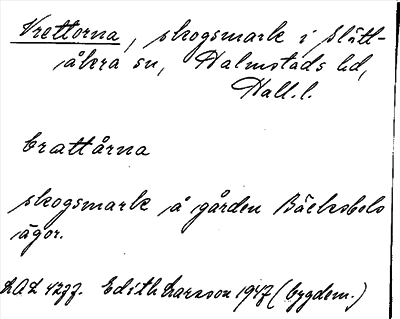 Vrettorna, skogsmark i Slätt-
åkra sn, Halmstads hd,
Hall. l.
brattårna
skogsmark å gården Bäcksbols
ägor.
LAL 4277. Edith Larsson 1947 (bygdem.)